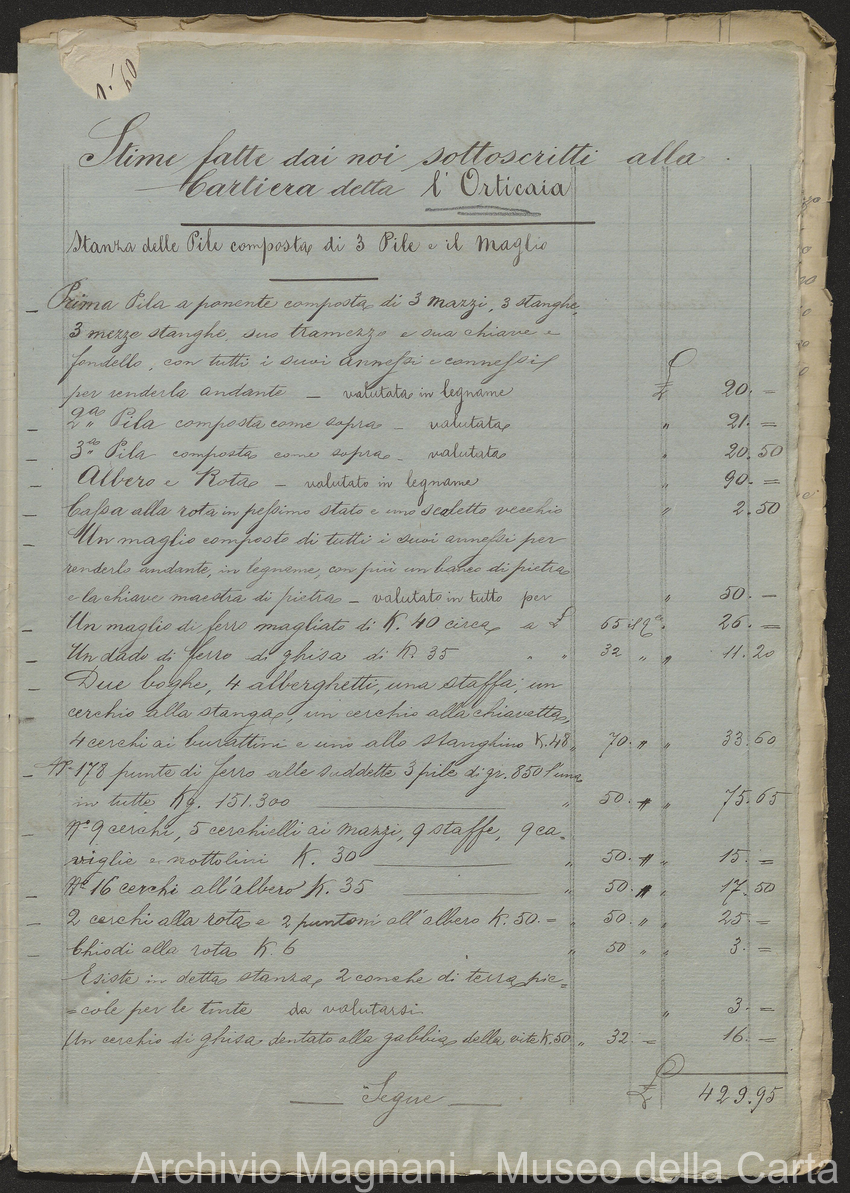 1.60
Stime fatte dai noi sottoscritti alla
Cartiera detta l'Orticaia
Stanza delle Pile composta di 3 Pile e il Maglio
Prima Pila a ponente composta di 3 mazzi, 3 stanghe,
3 mezze stanghe, suo tramezzo e sua chiave e
fondello, con tutti i suoi annessi e connessi
per renderla andante — valutata in legname £ 20. =
2.a Pila composta come sopra — valutata " 21. =
3.a Pila composta come sopra — valutata " 20.50
Albero e Rota — valutato in legname " 90. =
Cassa alla rota in pessimo stato e uno scaletto vecchio " 2.50
Un maglio composto di tutti i suoi annessi per
renderlo andante, in legname, con più un banco di pietra
e la chiave maestra di pietra — valutato in tutto per " 50. —
Un maglio di ferro magliato di K. 40 circa a £ 65 il q.e " 26. =
Un dado di ferro di ghisa di K. 35 " " 32 " " 11.20
Due boghe, 4 alberghetti, una staffa, un
cerchio alla stanga, un cerchio alla chiavetta,
4 cerchi ai burattini e uno allo stanghino K. 48 " 70. " " 33.60
N.° 178 punte di ferro alle suddette 3 pile di gr. 850 l'una
in tutte Kg. 151.300 " 50. " " 75.65
N.° 9 cerchi, 5 cerchielli ai mazzi, 9 staffe, 9 ca-
viglie e nottolini K. 30 " 50. " " 15. =
N.° 16 cerchi all'albero K. 35 " 50. " " 17.50
2 cerchi alla rota e 2 puntoni all'albero K. 50. = " 50. " " 25 =
Chiodi alla rota K. 6 " 50 " " 3. =
Esiste in detta stanza 2 conche di terra pic=
=cole per le tinte da valutarsi " 3. =
Un cerchio di ghisa dentato alla gabbia della vite K. 50 " 32 = 16. =
— Segue — £ 429.95
Archivio Magnani - Museo della Carta